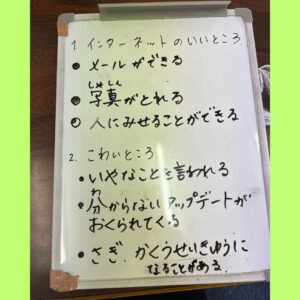 1. インターネットのいいところ
● メールができる
しゃしん
● 写真がとれる
● 人にみせることができる
2. こわいところ
● いやなことを言われる
わ
● 分からないアップデートが
おくられてくる
● さぎ かくうせいきゅうに
なることがある